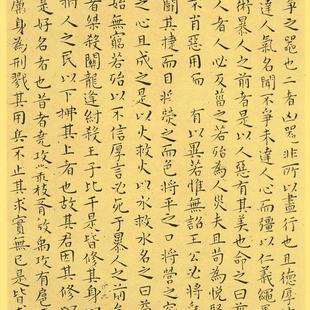 爭之噐也二者凶噐非所以盡行也且德厚
達人氣名聞不爭未達人心而彊以仁義繩
術暴人之前者是以人惡有其美也命之曰菑
人必反菑之若殆為人菑夫且苟為悅賢
不肖惡用而有以異若惟無詔王公必將
鬬其捷而目將熒之而色將平之口將營之容
之心且成之是以火救火以水救水名之曰益
始無窮若殆以不信厚言必死于暴人之前
者桀殺關龍逢紂殺王子比干是皆修其身以
拊人之民以下拂其上者也故其君因其修
是好名者也昔者堯攻叢枝胥敖禹攻有扈
厲身為刑戮其用兵不止其求實無已是皆